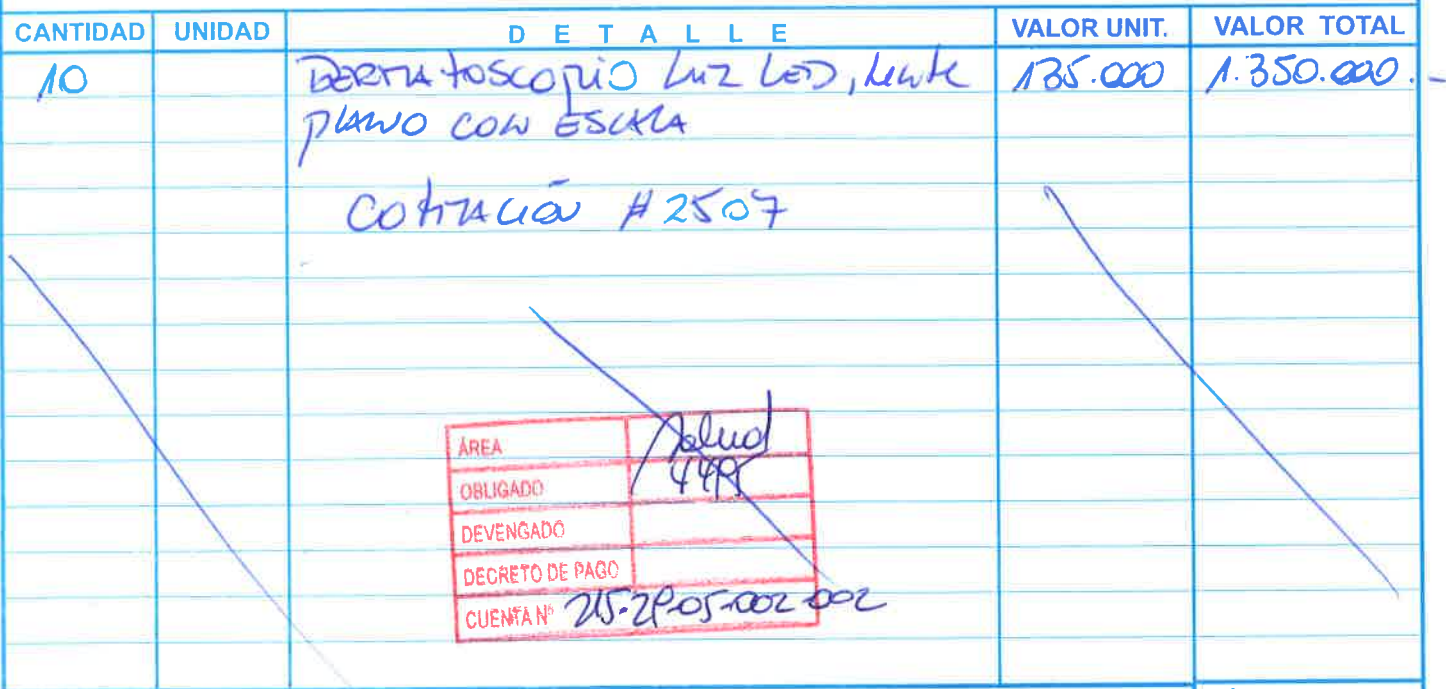 CANTIDAD UNIDAD DETALLE VALOR UNIT. VALOR TOTAL
10 DERMATOSCOPIO LUZ LED, Lente 135.000 1.350.000.-
PLANO CON ESCALA
COTIZACIÓN #2507
ÁREA Salud
OBLIGADO
DEVENGADO
DECRETO DE PAGO
CUENTA Nº 215-29-05-002-002